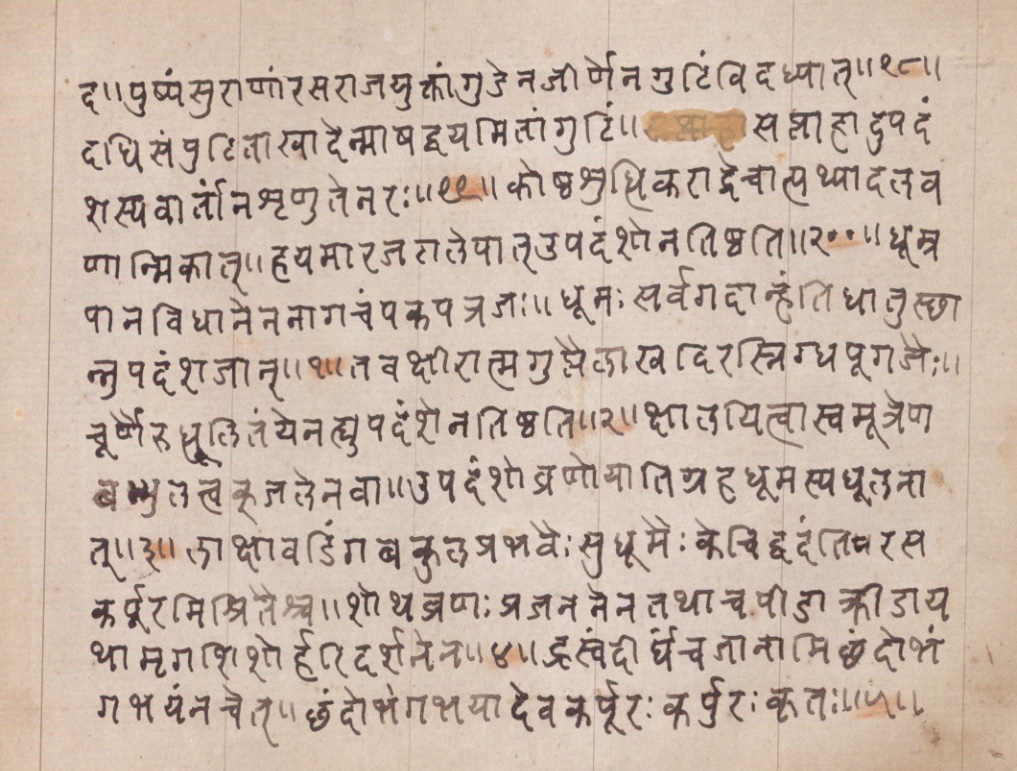 द॥पुष्पंसुराणांरसराजयुक्तांगुडेनजीर्णेनगुटिंविदध्यात्॥१८॥
दधिसंपुटितांखादेन्माषद्वयमितांगुटिं॥ सप्ताहादुपदं
शस्यवार्तांनशृणुतेनरः॥१९॥कोष्ठशुधिकराद्देवात्पथ्यादलव
णान्मिकात्॥हयमारजटालेपात्उपदंशोनतिष्ठति॥२००॥धूम्र
पानविधानेननागचंपकपत्रजः॥धूमःसर्वगदान्हंतिधातुस्छा
न्तुपदंशजान्॥१॥तवक्षीरात्मगुप्तैलाखदिरस्निग्धपूगजैः॥
चूर्णैरुधूलितंयेनत्द्युपदंशेनतिष्ठति॥२॥क्षालयित्वास्वमूत्रेण
बब्बुलत्वक्जलेनवा॥उपदंशोव्रणोयातिग्रहधूमस्यधूलना
त्॥३॥लाक्षावडिंगबकुलप्रभवैःसुधूमैःकेचिद्वदंति रस
कर्पूरमिश्रितैश्च॥शोथव्रणःप्रजननेनतथाचपीडाक्रीडाय
थामृगशिशोर्हरिदर्शनेन॥४॥ह्रस्वंदीर्घंचजानामिछंदोभं
गभयंनचेत्॥छंदोभंगभयादेवकर्पूरःकर्पुरःकृतः॥५॥